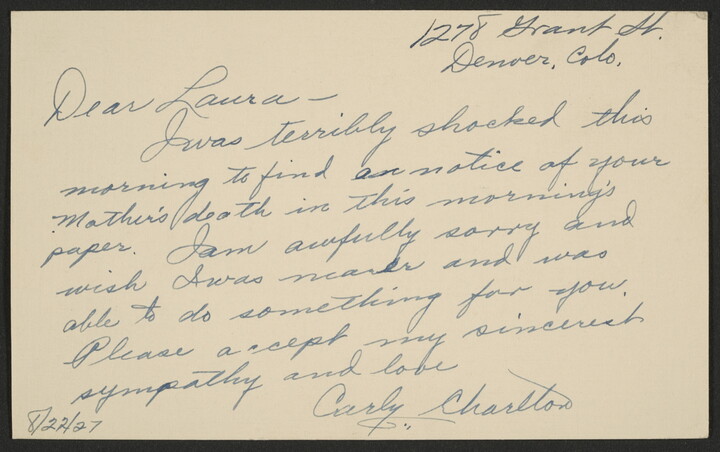 1278 Grant St.
Denver, Colo.
Dear Laura—
I was terribly shocked this
morning to find an notice of your
Mother's death in this morning's
paper. I am awfully sorry and
wish I was nearer and was
able to do something for you.
Please accept my sincerest
sympathy and love
Carly Charlton
8/22/27